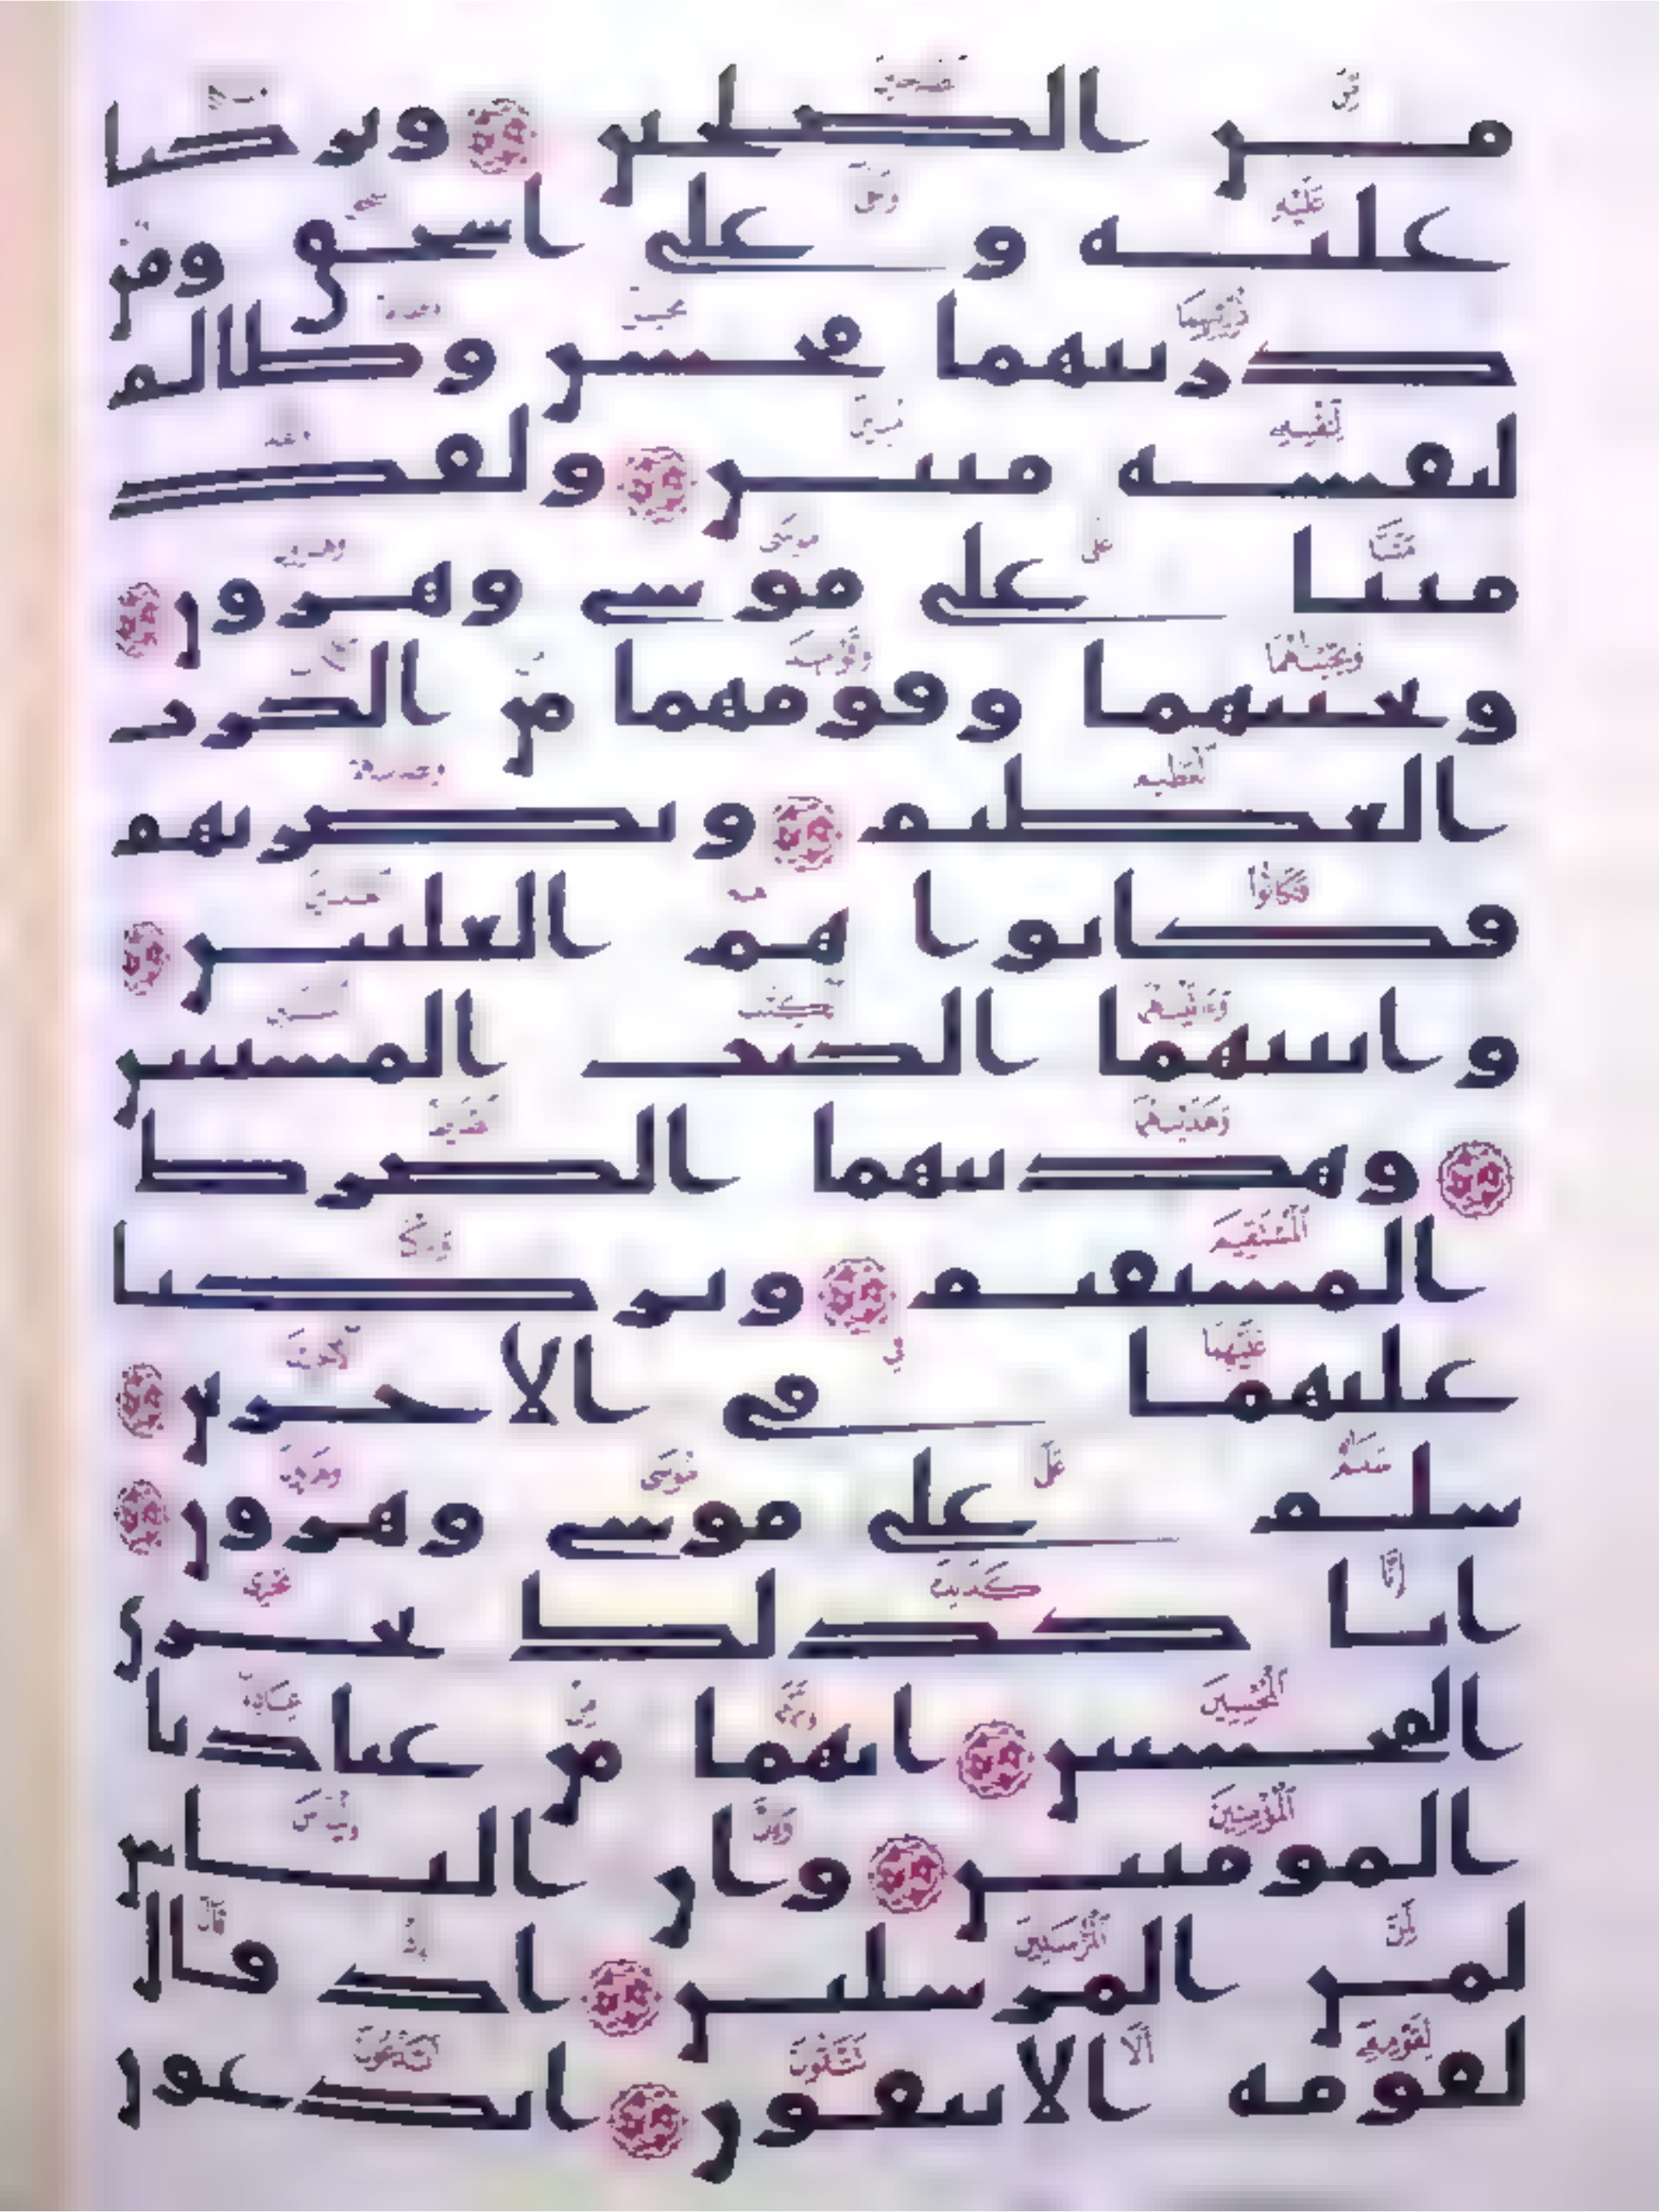 من الصلحين وبركنا
عليه وعلى اسحق ومن
ذريتهما محسن وظالم
لنفسه مبين ولقد
مننا على موسى وهرون
ونجينهما وقومهما من الكرب
العظيم ونصرنهم
فكانوا هم الغلبين
واتينهما الكتب المستبين
وهدينهما الصرط
المستقيم وتركنا
عليهما في الاخرين
سلم على موسى وهرون
انا كذلك نجزي
المحسنين انهما من عبادنا
المومنين وان الياس
لمن المرسلين اذ قال
لقومه الا تتقون اتدعون